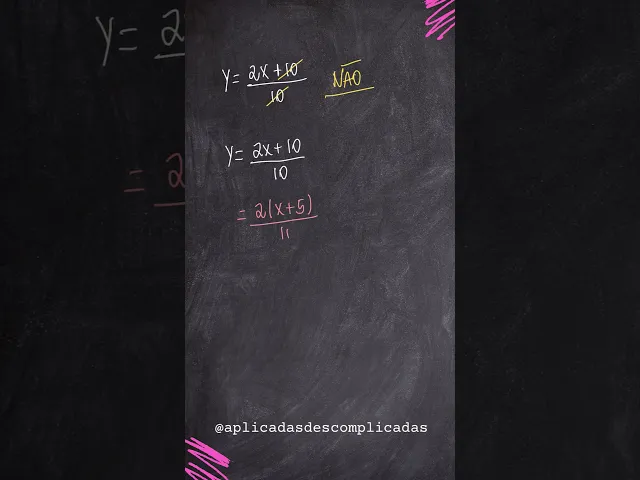 Y = 2x + 10 / 10 NÃO
Y = 2x + 10 / 10
= 2(x + 5) / 11
@aplicadasdescomplicadas